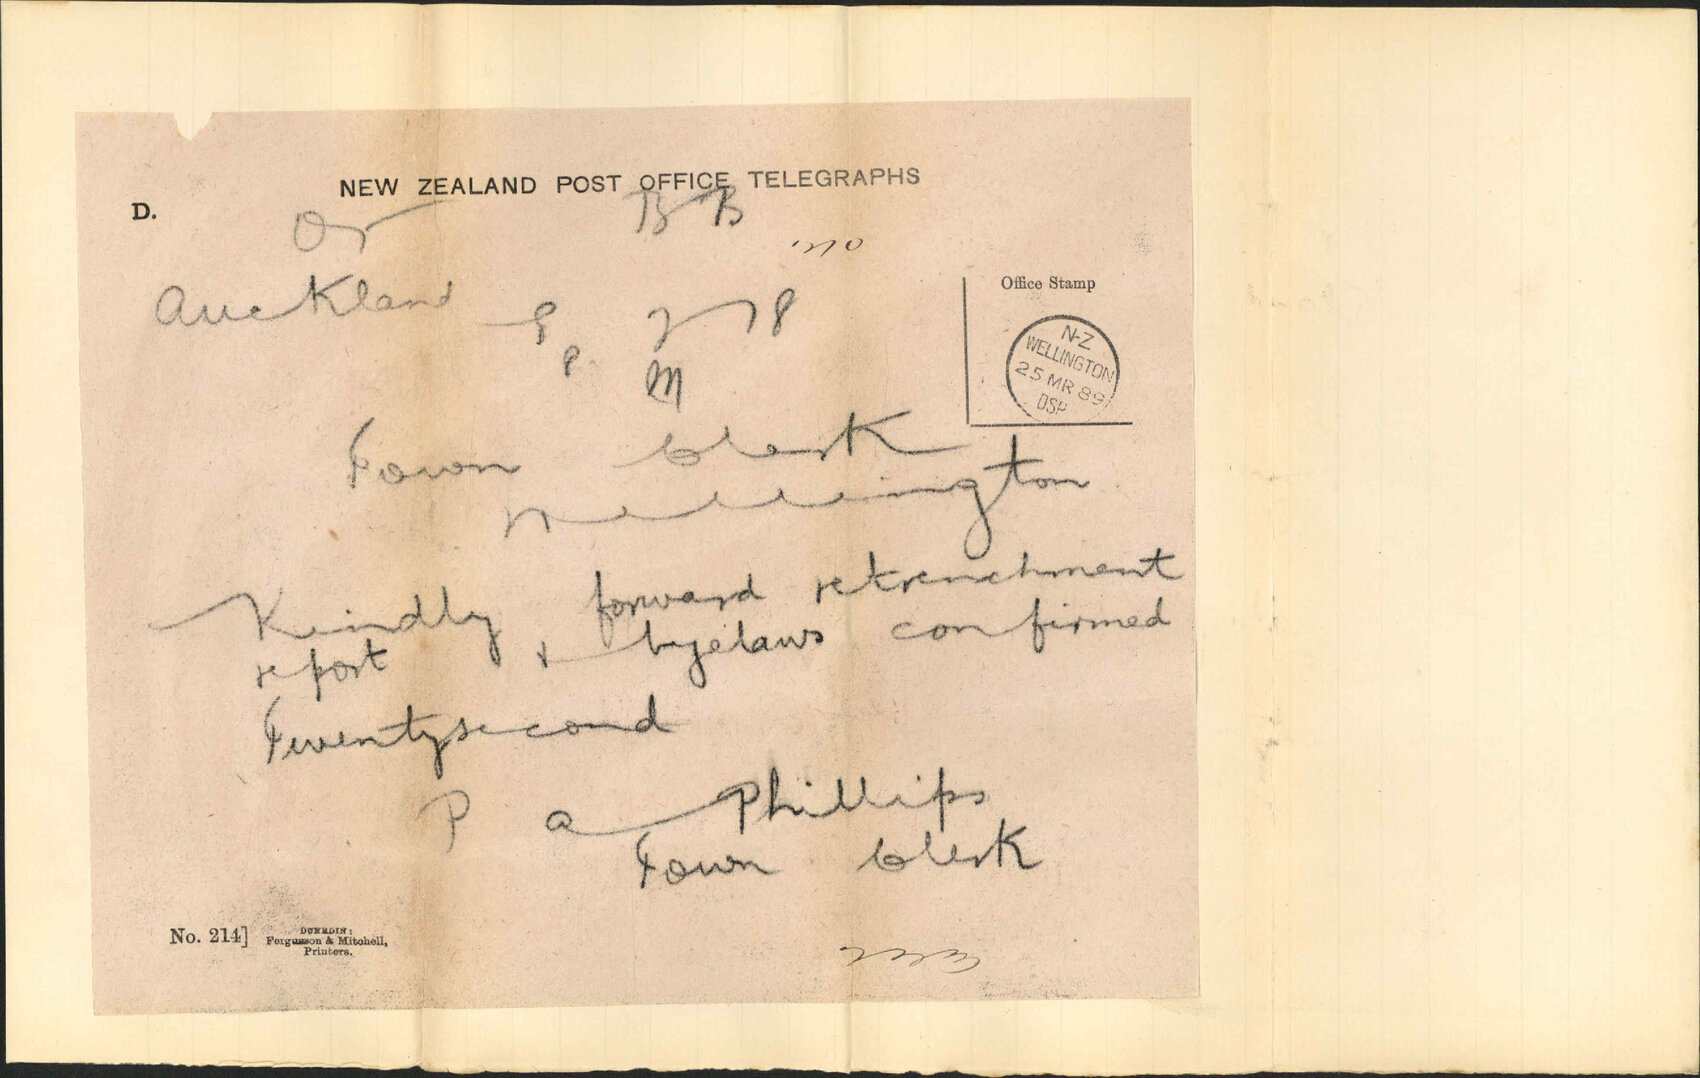 NEW ZEALAND POST OFFICE TELEGRAPHS
D.
BB
Auckland
Office Stamp
N-Z
WELLINGTON
25 MR 89
M
Town Clerk
Wellington
Kindly forward retrenchment
report & byelaws confirmed
Twentysecond
P a Phillips
Town Clerk
No. 214]
DUNEDIN:
Fergusson & Mitchell,
Printers.